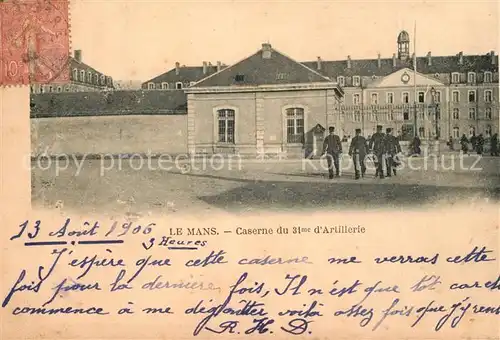 10
LE MANS. - Caserne du 31me d'Artillerie
13 Août 1906
3 Heures
J'espère que cette caserne me verras cette
fois pour la dernière fois, Il n'est que tot car
commence à me dégoutter voilà assez fois que j'y
R. H. D.